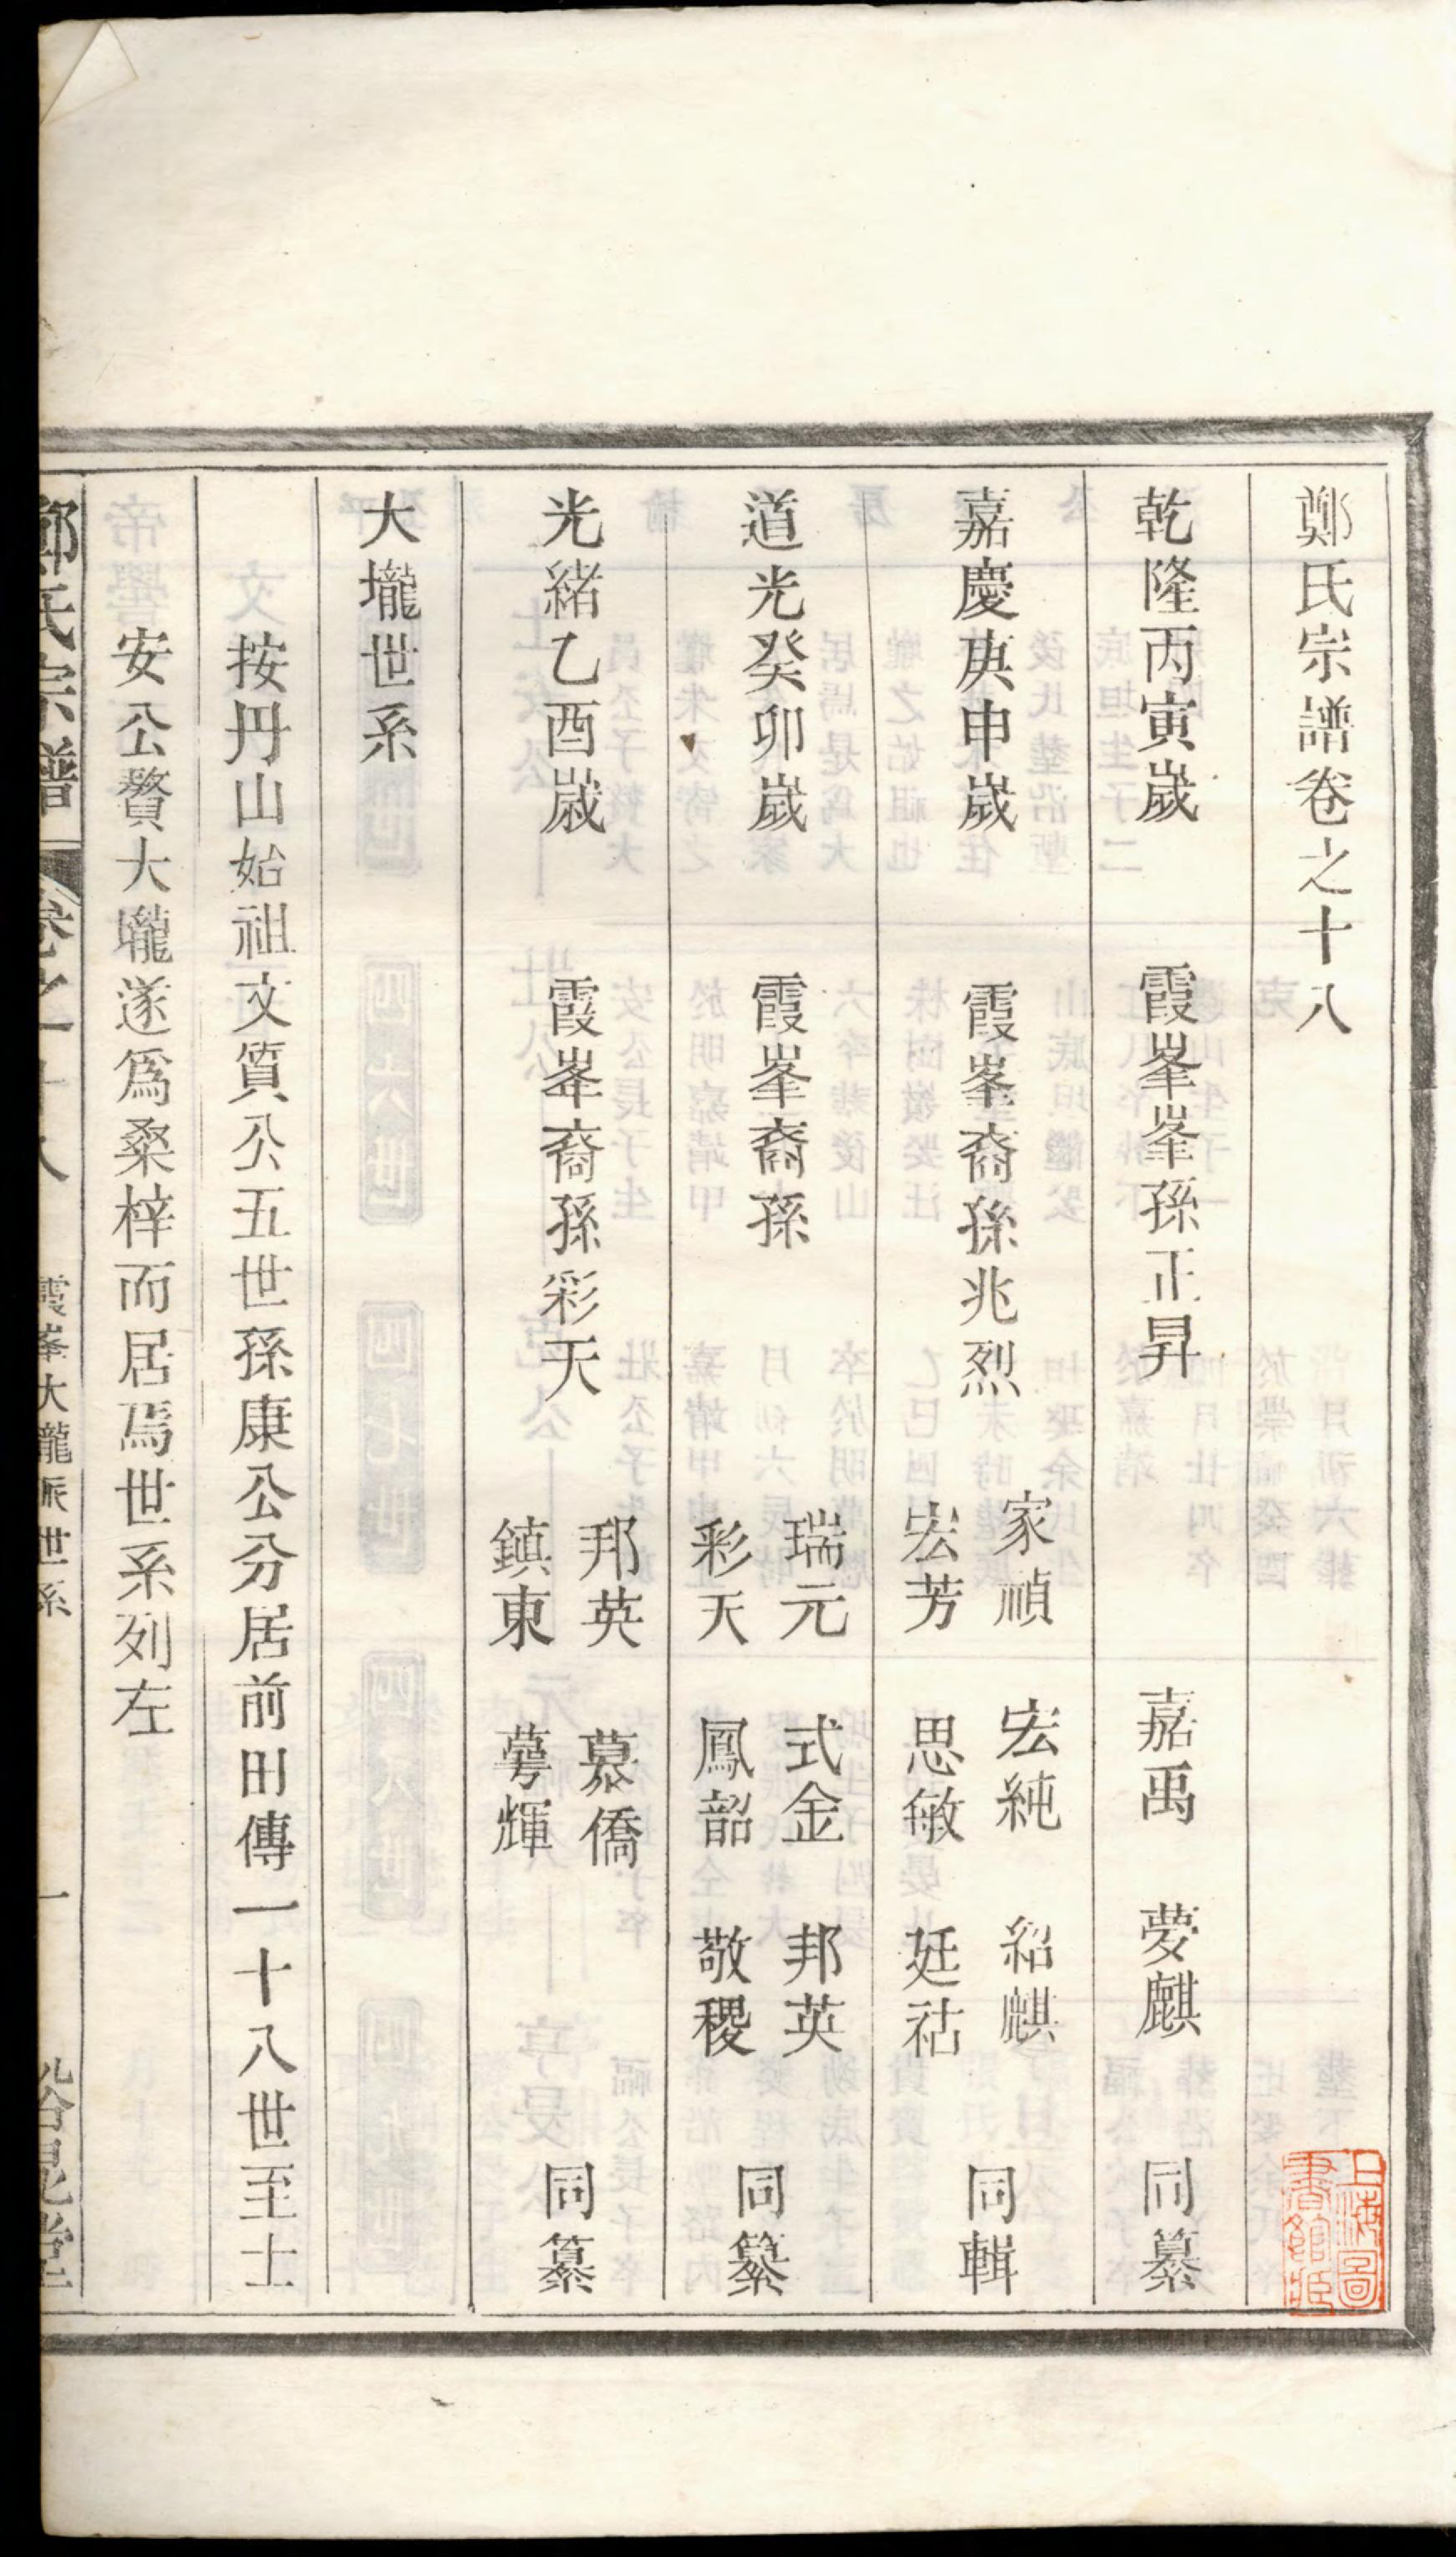 鄭氏宗譜卷之十八
乾隆丙寅歲 霞峯峯孫正昇 嘉禹 夢麒 同纂
嘉慶庚申歲 霞峯裔孫兆烈 家禎 宏純 紹麒 宏芳 思敏 廷祜 同輯
道光癸卯歲 霞峯裔孫 瑞元 式金 邦英 彩天 鳳韶 敬稷 同纂
光緒乙酉歲 霞峯裔孫彩天 邦英 慕僑 鎮東 蕚輝 同纂
大壠世系
按丹山始祖文質公五世孫康公分居前田傳一十八世至士
安公贅大壠遂爲桑梓而居焉世系列左
鄭氏宗譜 卷之十八 霞峯大壠派世系 一
上海圖書館藏